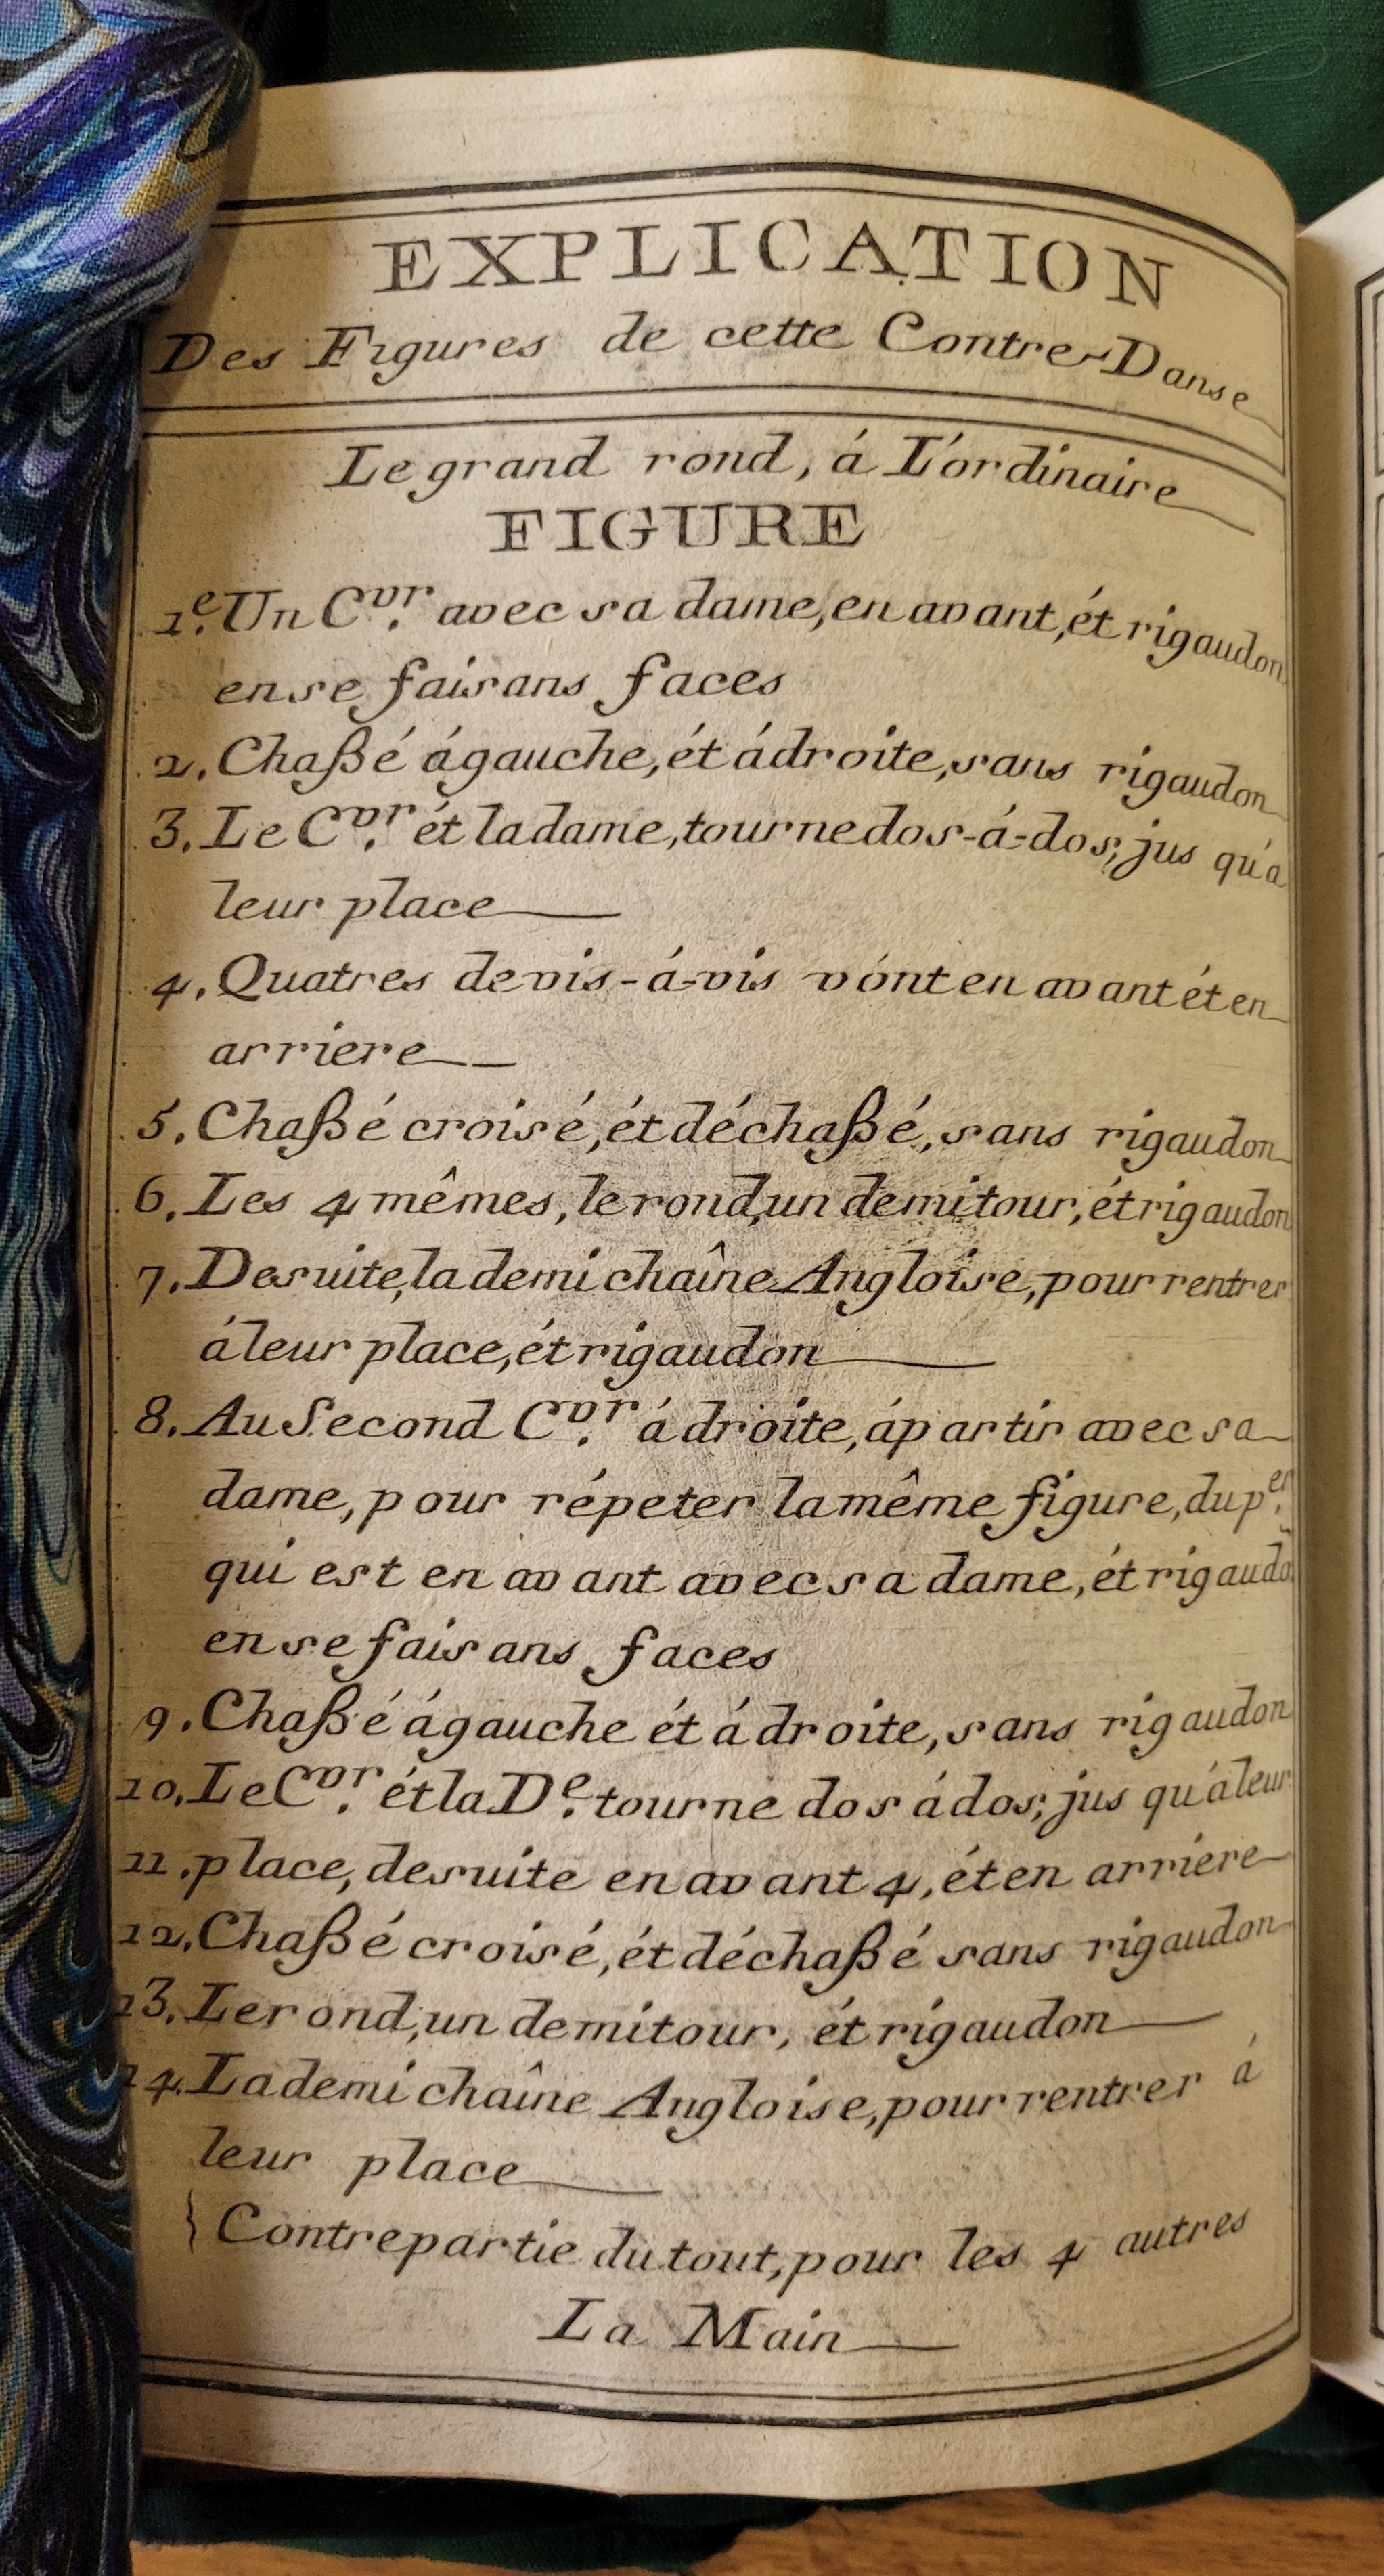 EXPLICATION
Des Figures de cette Contre-Danse
Le grand rond, á L'ordinaire
FIGURE
1.e Un C.vr avec sa dame, en avant, ét rigaudon
en se faisans faces
2. Chaßé á gauche, ét á droite, sans rigaudon
3. Le C.vr ét la dame, tourne dos-á-dos; jus qu'a
leur place
4. Quatres de vis-á-vis vónt en avant ét en
arriere
5. Chaßé croisé, ét déchaßé, sans rigaudon
6. Les 4 mêmes, le rond, un demi tour, ét rigaudon
7. De suite, la demi chaîne Angloise, pour rentrer
á leur place, ét rigaudon
8. Au Second C.vr á droite, á partir avec sa
dame, pour répeter la même figure, du p.er
qui est en avant avec sa dame, ét rigaudõ
en se faisans faces
9. Chaßé á gauche ét á droite, sans rigaudon
10. Le C.vr ét la D.e tourne dos á dos; jus qu'á leur
11. place, de suite en avant 4, ét en arriere
12. Chaßé croisé, ét déchaßé sans rigaudon
13. Le rond, un demi tour, ét rigaudon
14. La demi chaîne Angloise, pour rentrer á
leur place
} Contrepartie du tout, pour les 4 autres
La Main